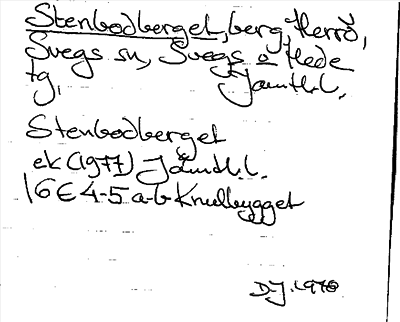 Stenbodberget, berg, Herrö,
Svegs sn, Svegs o Hede
tg, Jämtl.l.
Stenbodberget
ek (1977) Jämtl.l.
16E 4-5 a-b Knullbygget
D.J. 1978